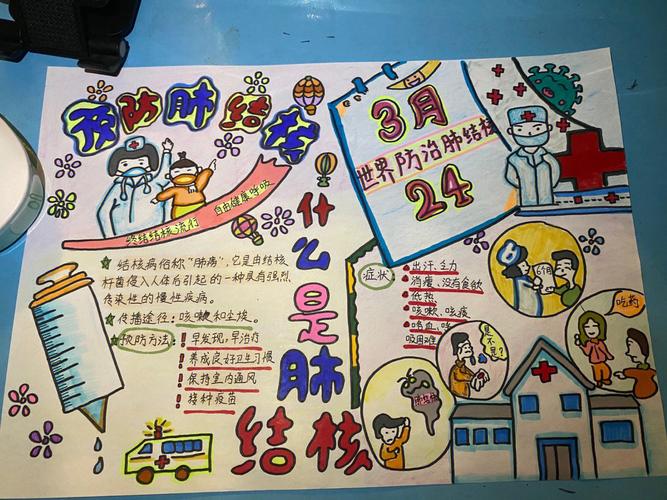 预防肺结核
3月
世界防治肺结核
24
终结结核流行 自由健康呼吸
什么是肺结核
结核病俗称“肺痨”,它是由结核
杆菌侵入人体后引起的一种具有强烈
传染性的慢性疾病。
传播途径:咳嗽和尘埃。
预防方法:
早发现,早治疗
养成良好卫生习惯
保持室内通风
接种疫苗
症状
出汗、乏力
消瘦、没有食欲
低热
咳嗽、咳痰
咯血、咳
吸困难
6个月
是不是?
吃药